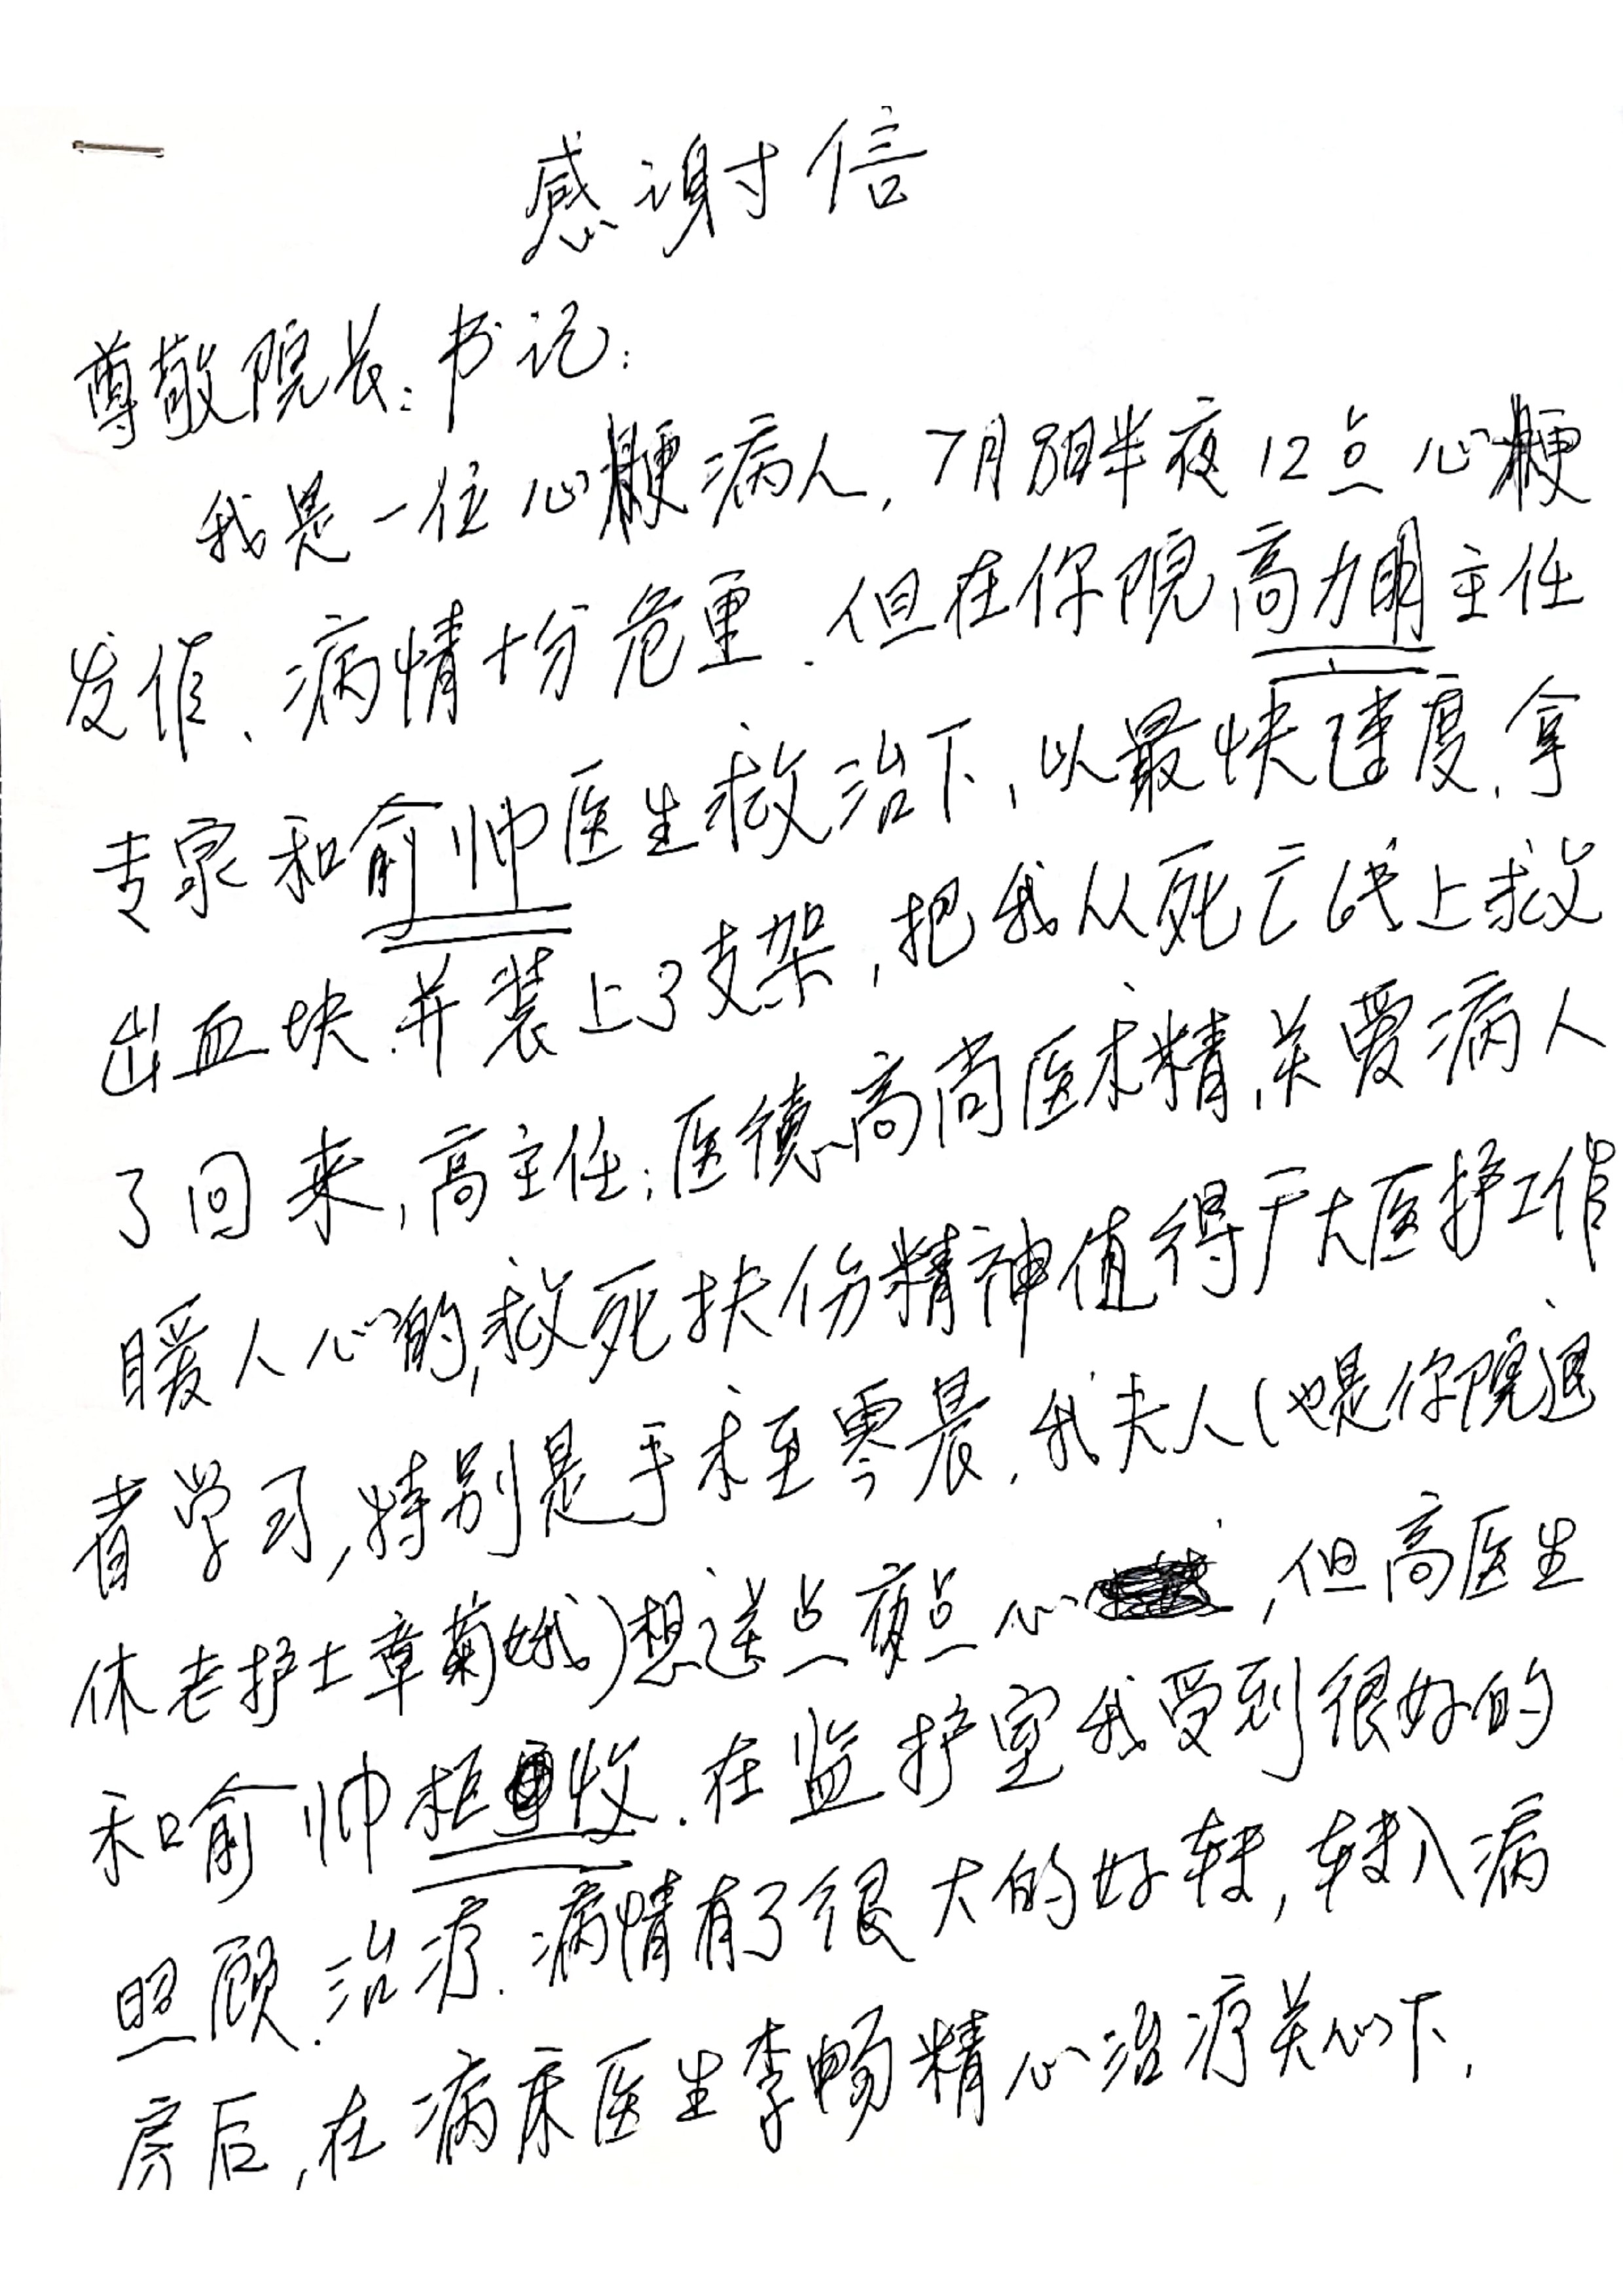 感谢信
尊敬院长:书记:
我是一位心梗病人,7月8日半夜12点心梗
发作、病情十分危重.但在你院高力明主任
专家和俞帅医生救治下,以最快速度,拿
出血块.并装上了支架,把我从死亡线上救
了回来,高主任:医德高尚医术精,关爱病人
暖人心的,救死扶伤精神值得广大医护工作
者学习,特别是手术至零晨,我夫人(也是你院退
休老护士章菊娥)想送点夜点心,但高医生
和俞帅拒收.在监护室我受到很好的
照顾.治疗.病情有了很大的好转,转入病
房后,在病床医生李畅精心治疗关心下,